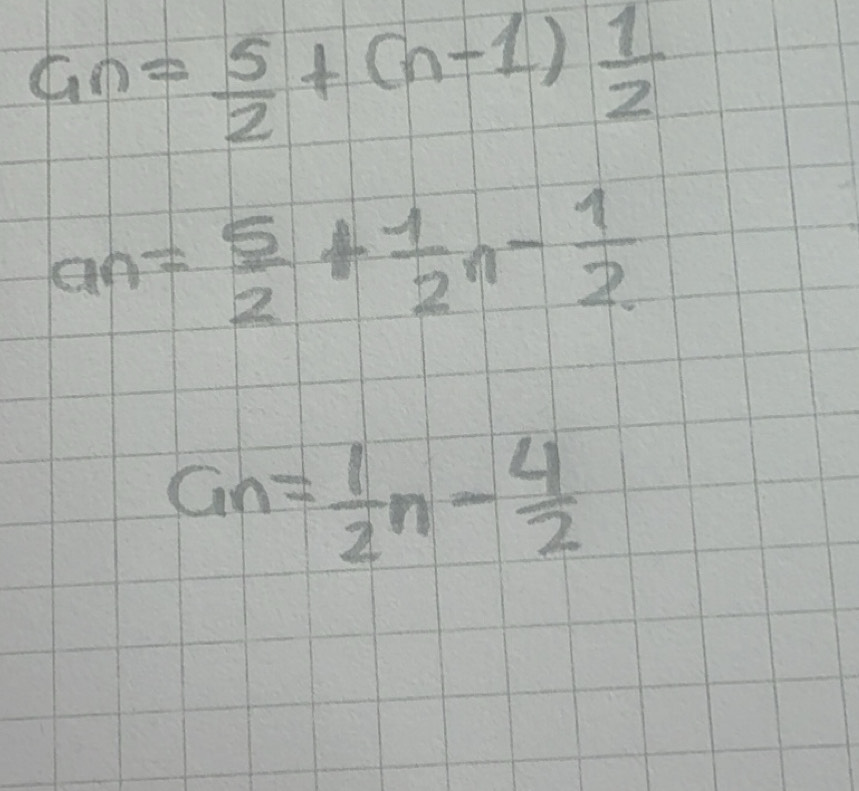 an = 5/2 + (n-1) 1/2
an = 5/2 + 1/2 n - 1/2
an = 1/2 n - 4/2